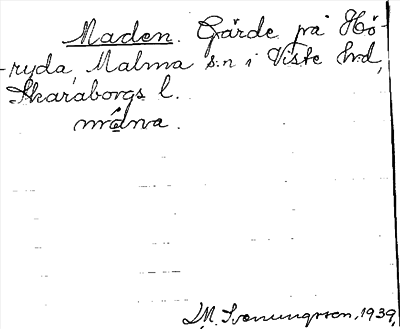 Maden. Gärde på Hö-
ryda, Malma s:n i Viste hd,
Skaraborgs l.
måna.
L.M. Svenungsson, 1939,